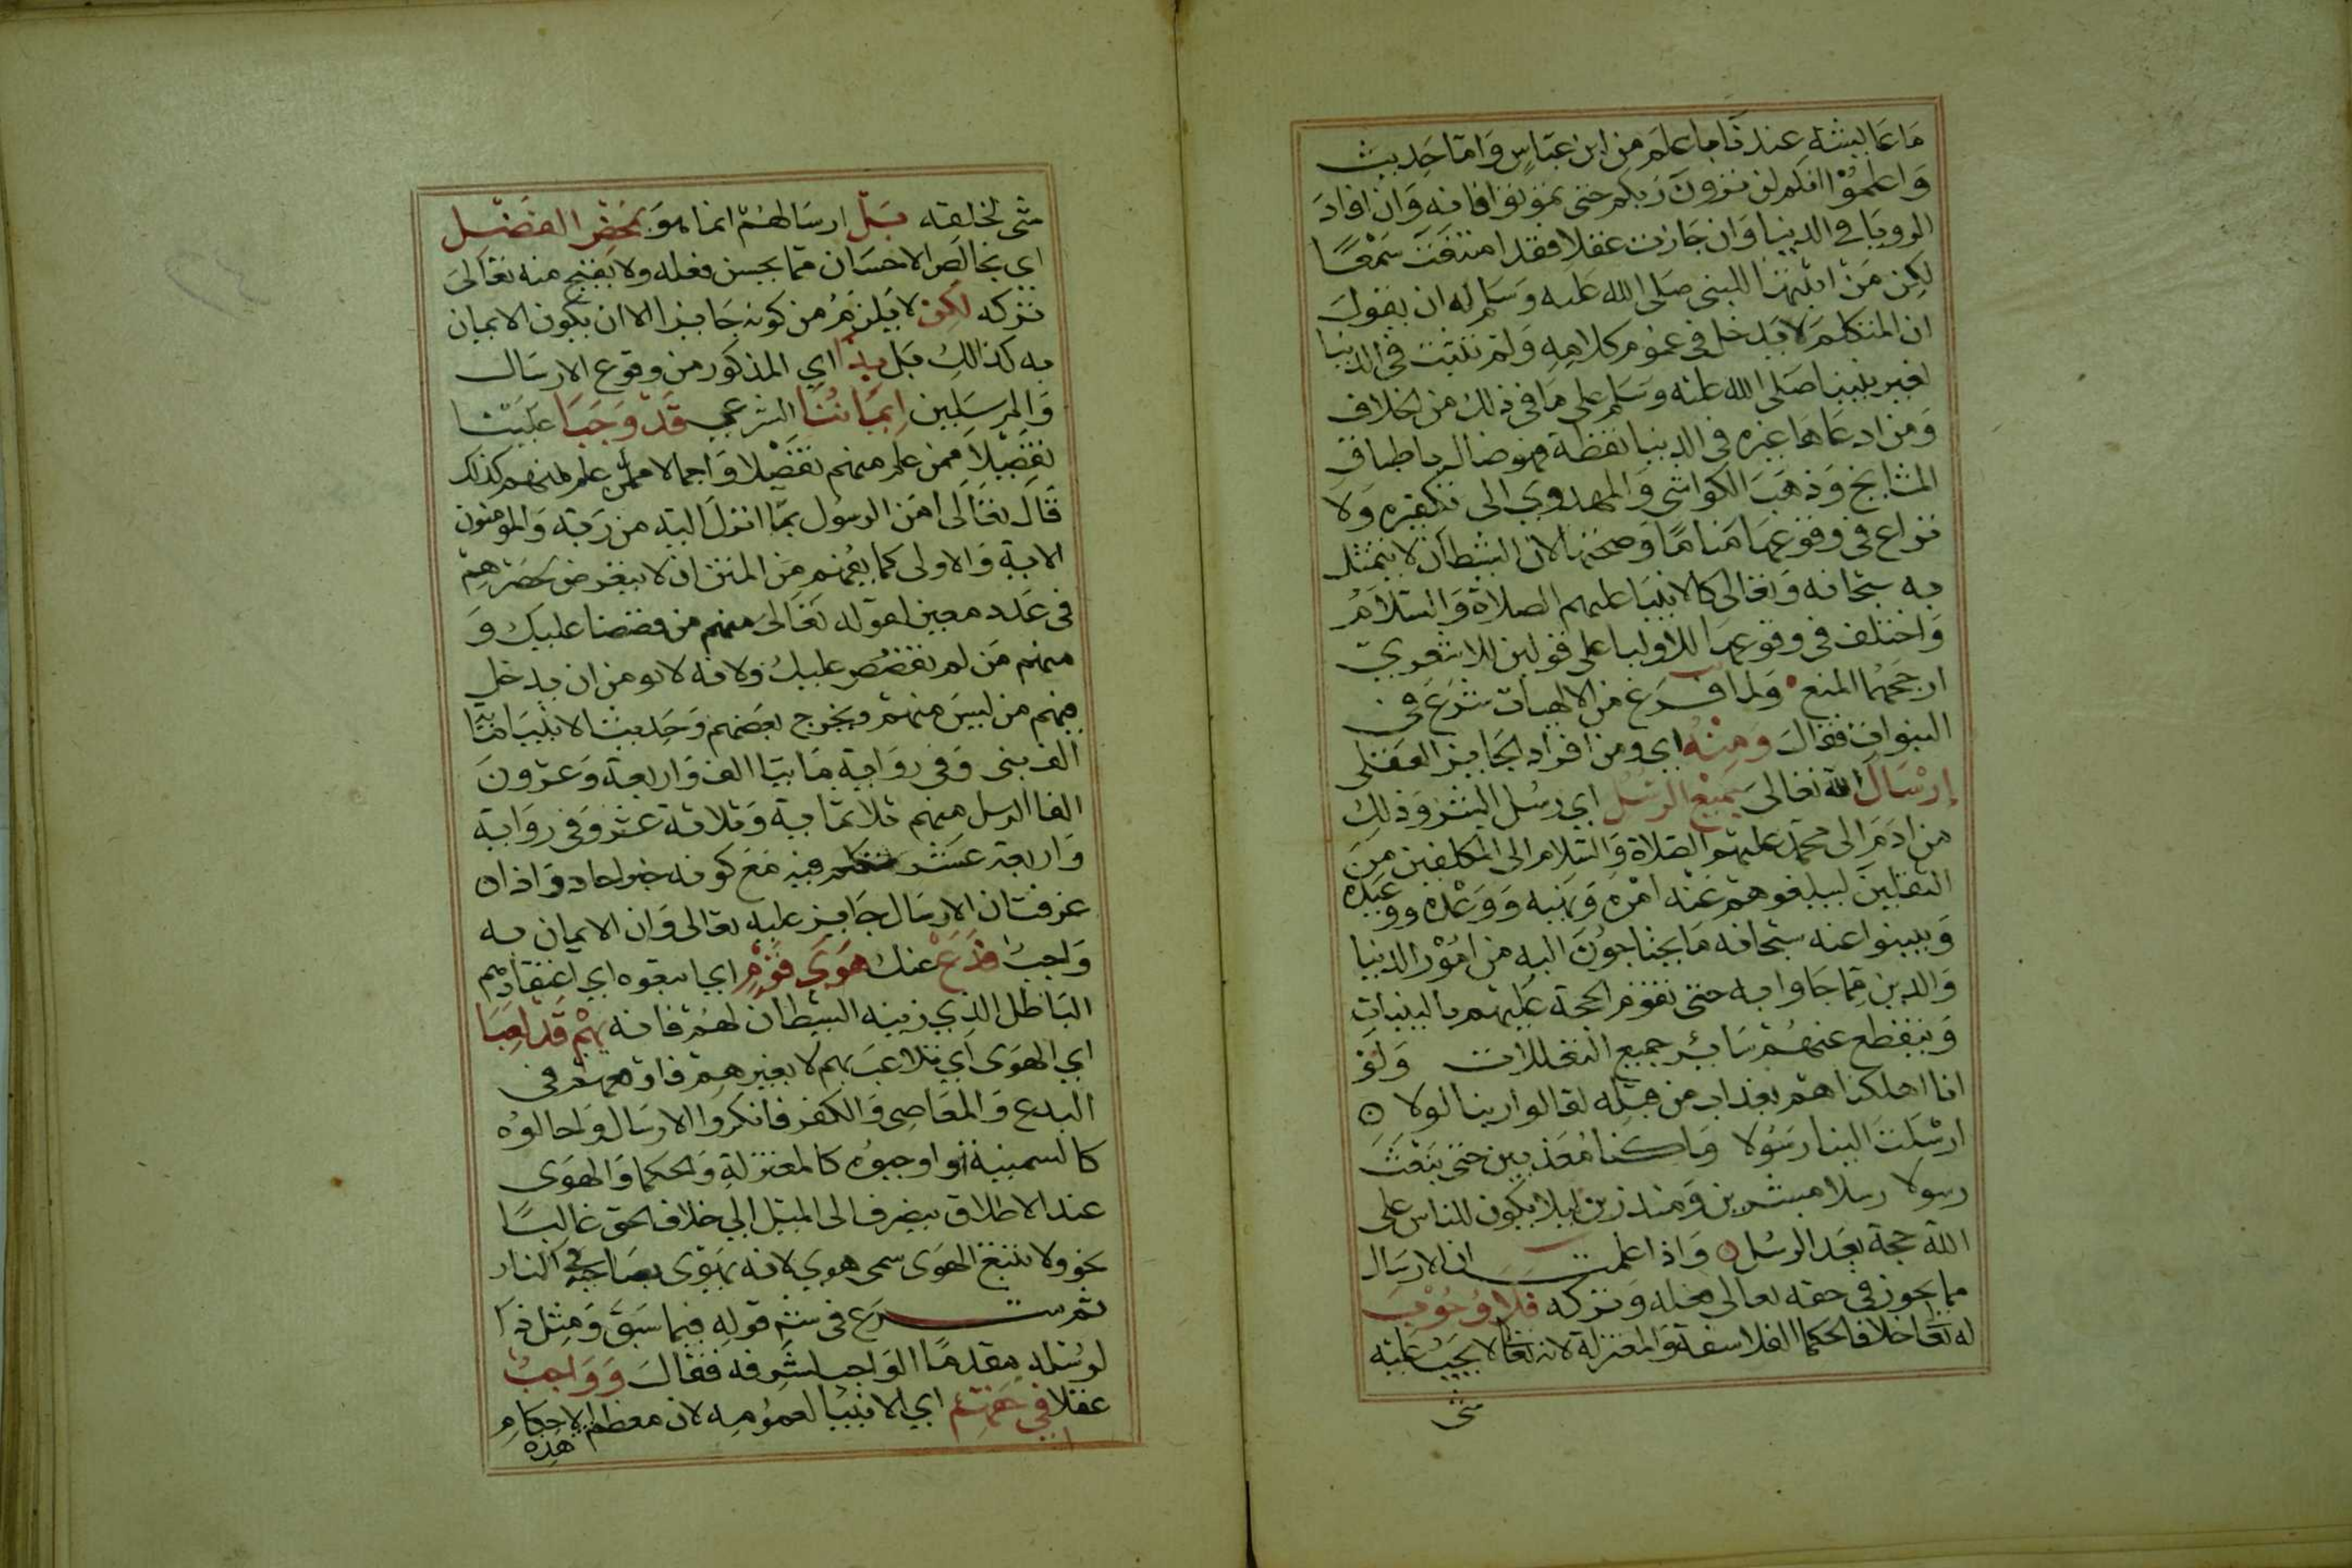 ما عايشة عندنا باعلم من ابن عباس واما حديث
واعلموا انكم لن تروا ربكم حتى تموتوا فانه وان افاد
الرويا في الدنيا وان جازت عقلا فقد امتنعت سمعا
لكن من اثبتها للنبي صلى الله عليه وسلم له ان يقول
ان المتكلم لا يدخل في عموم كلامه ولم تثبت في الدنيا
لغير نبينا صلى الله عليه وسلم على ما في ذلك من الخلاف
ومن ادعاها غيره في الدنيا يقظة فهو ضال باطباق
المشايخ وذهب الكواشي والمهدوي الى تكفيره ولا
نزاع في وقوعها مناما وصحتها لان الشيطان لا يتمثل
به سبحانه وتعالى كالانبيا عليهم الصلاة والسلام
واختلف في وقوعها للاوليا على قولين للاشعري
ارجحهما المنع ولما فرغ من الالهيات شرع في
النبوات فقال ومنه اي ومن افراد الجايز العقلي
إرسال الله تعالى جميع الرسل اي رسل البشر وذلك
من ادم الى محمد عليهم الصلاة والسلام الى المكلفين من
الثقلين ليبلغوهم عنه امره ونهيه ووعده ووعيده
ويبينوا عنه سبحانه ما يحتاجون اليه من امور الدنيا
والدين مما جاوا به حتى تقوم الحجة عليهم بالبينات
وينقطع عنهم ساير جميع التعللات ولو
انا اهلكناهم بعذاب من قبله لقالوا ربنا لولا
ارسلت الينا رسولا وما كنا معذبين حتى نبعث
رسولا رسلا مبشرين ومنذرين ليلا يكون للناس على
الله حجة بعد الرسل واذا علمت ان الارسال
مما يجوز في حقه تعالى فعله وتركه فلا وجوب
له تعا خلافا لحكما الفلاسفة والمعتزلة لانه تعا لا يجب عليه
شي
شي لخلقه بل ارسالهم انما هو بمحض الفضل
اي بخالص الاحسان مما يحسن فعله ولا يقبح منه تعالى
تركه لكن لا يلزم من كونه جايزا الا ان يكون الايمان
به كذالك بل بذا اي المذكور من وقوع الارسال
والمرسلين إيماننا الشرعي قد وجبا علينا
تفصيلا فمن علم منهم تفصيلا واجمالا فمن علم منهم كذلك
قال تعالى امن الرسول بما انزل اليه من ربه والمومنون
الاية والاولى كما يفهم من المتن ان لا يتعرض لحصرهم
في عدد معين لقوله تعالى منهم من قصصنا عليك و
منهم من لم نقصص عليك ولانه لا يومن ان يدخل
فيهم من ليس منهم ويخرج بعضهم وحديث الانبيا ماية
الف نبي وفي رواية مايتا الف واربعة وعشرون
الفا الرسل منهم ثلاثماية وثلاثة عشر وفي رواية
واربعة عشر متكلم فيه مع كونه خبر احاد واذا
عرفت ان الارسال جايز عليه تعالى وان الايمان به
واجب فدع عنك هوى قوم اي اتبعوه اي اعتقادهم
الباطل الذي زينه الشيطان لهم فانه بهم قد لعبا
اي الهوى اي تلاعب بهم لا بغيرهم فاوقعهم في
البدع والمعاصي والكفر فانكروا الارسال واحالوه
كالسمنية او اوجبوه كالمعتزلة والحكما والهوى
عند الاطلاق ينصرف الى الميل الي خلاف الحق غالبا
نحو ولا تتبع الهوى سمي هوي لانه يهوى بصاحبه في النار
ثم شرع في شرح قوله فيما سبق ومثل ذا
لرسله مقدما الواجب لشرفه فقال وواجب
عقلا في حقهم اي الانبيا لعمومه لان معظم الاحكام
هذه